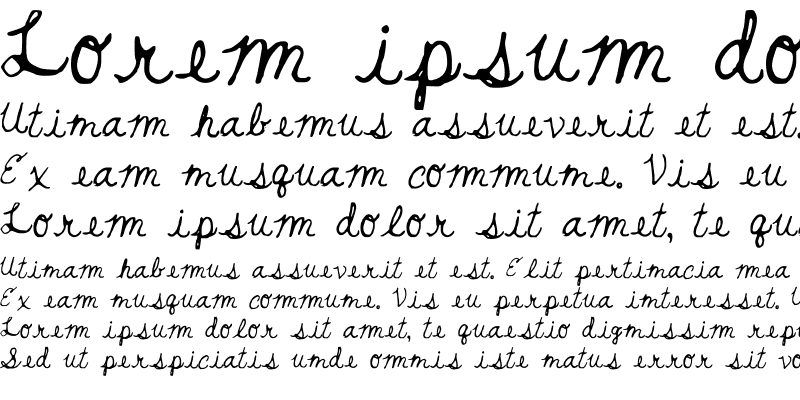 Lorem ipsum do
Utinam habemus assueverit et est.
Ex eam nusquam commune. Vis eu
Lorem ipsum dolor sit amet, te qu
Utinam habemus assueverit et est. Elit pertinacia mea
Ex eam nusquam commune. Vis eu perpetua interesset.
Lorem ipsum dolor sit amet, te quaestio dignissim rep
Sed ut perspiciatis unde omnis iste natus error sit vo